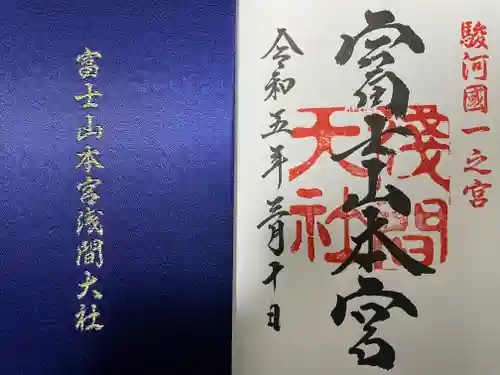 富士山本宮浅間大社
駿河國一之宮
富士山本宮
淺間大社
令和五年三月十日